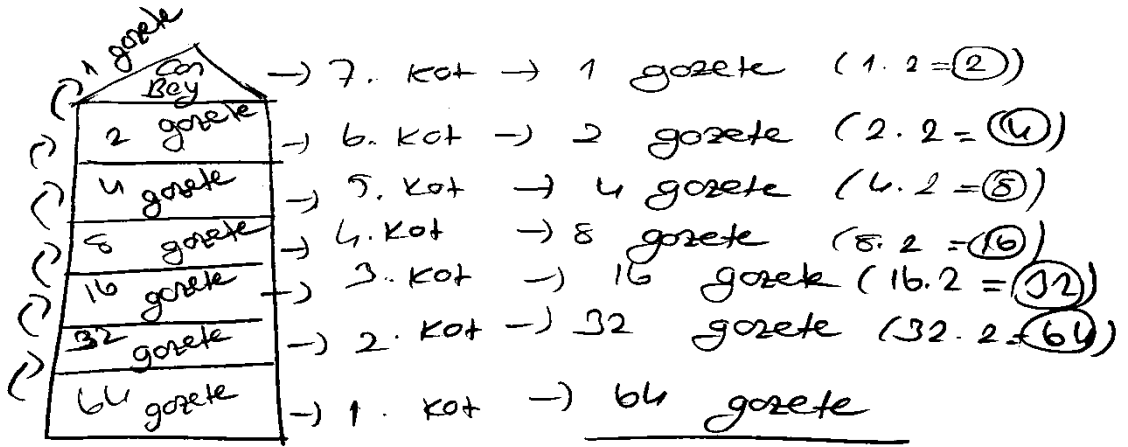 1 gazete
Can Bey → 7. kat → 1 gazete (1.2=2)
2 gazete → 6. kat → 2 gazete (2.2=4)
4 gazete → 5. kat → 4 gazete (4.2=8)
8 gazete → 4. kat → 8 gazete (8.2=16)
16 gazete → 3. kat → 16 gazete (16.2=32)
32 gazete → 2. kat → 32 gazete (32.2=64)
64 gazete → 1. kat → 64 gazete